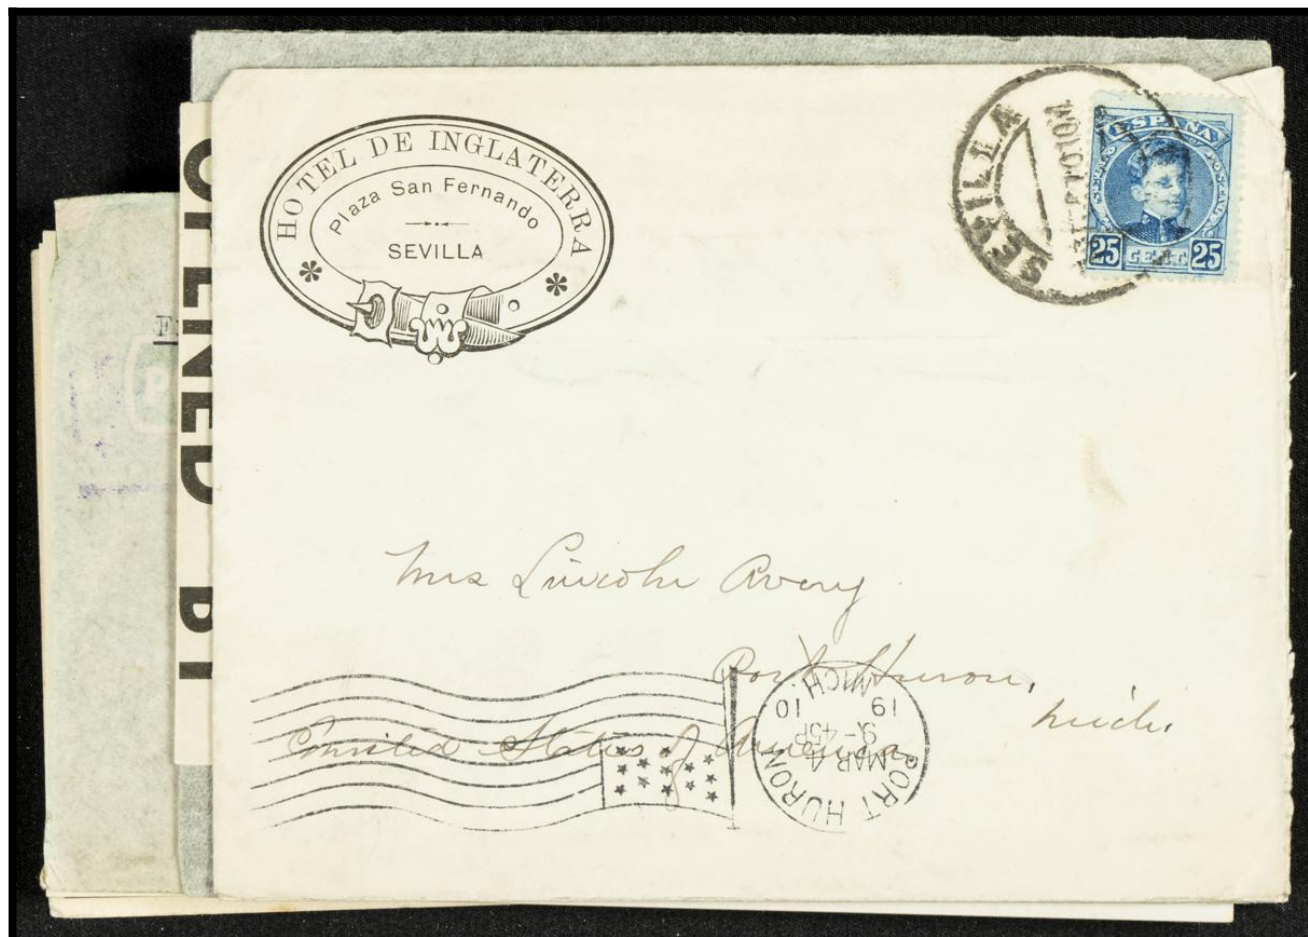 HOTEL DE INGLATERRA
Plaza San Fernando
SEVILLA
SEVILLA
ESPAÑA
25 25
OPENED
P
F
Mrs Lincoln Avery
Port Huron,
Mich.
United States of America
PORT HURON MICH.
MAR 4
9-45P
19 10